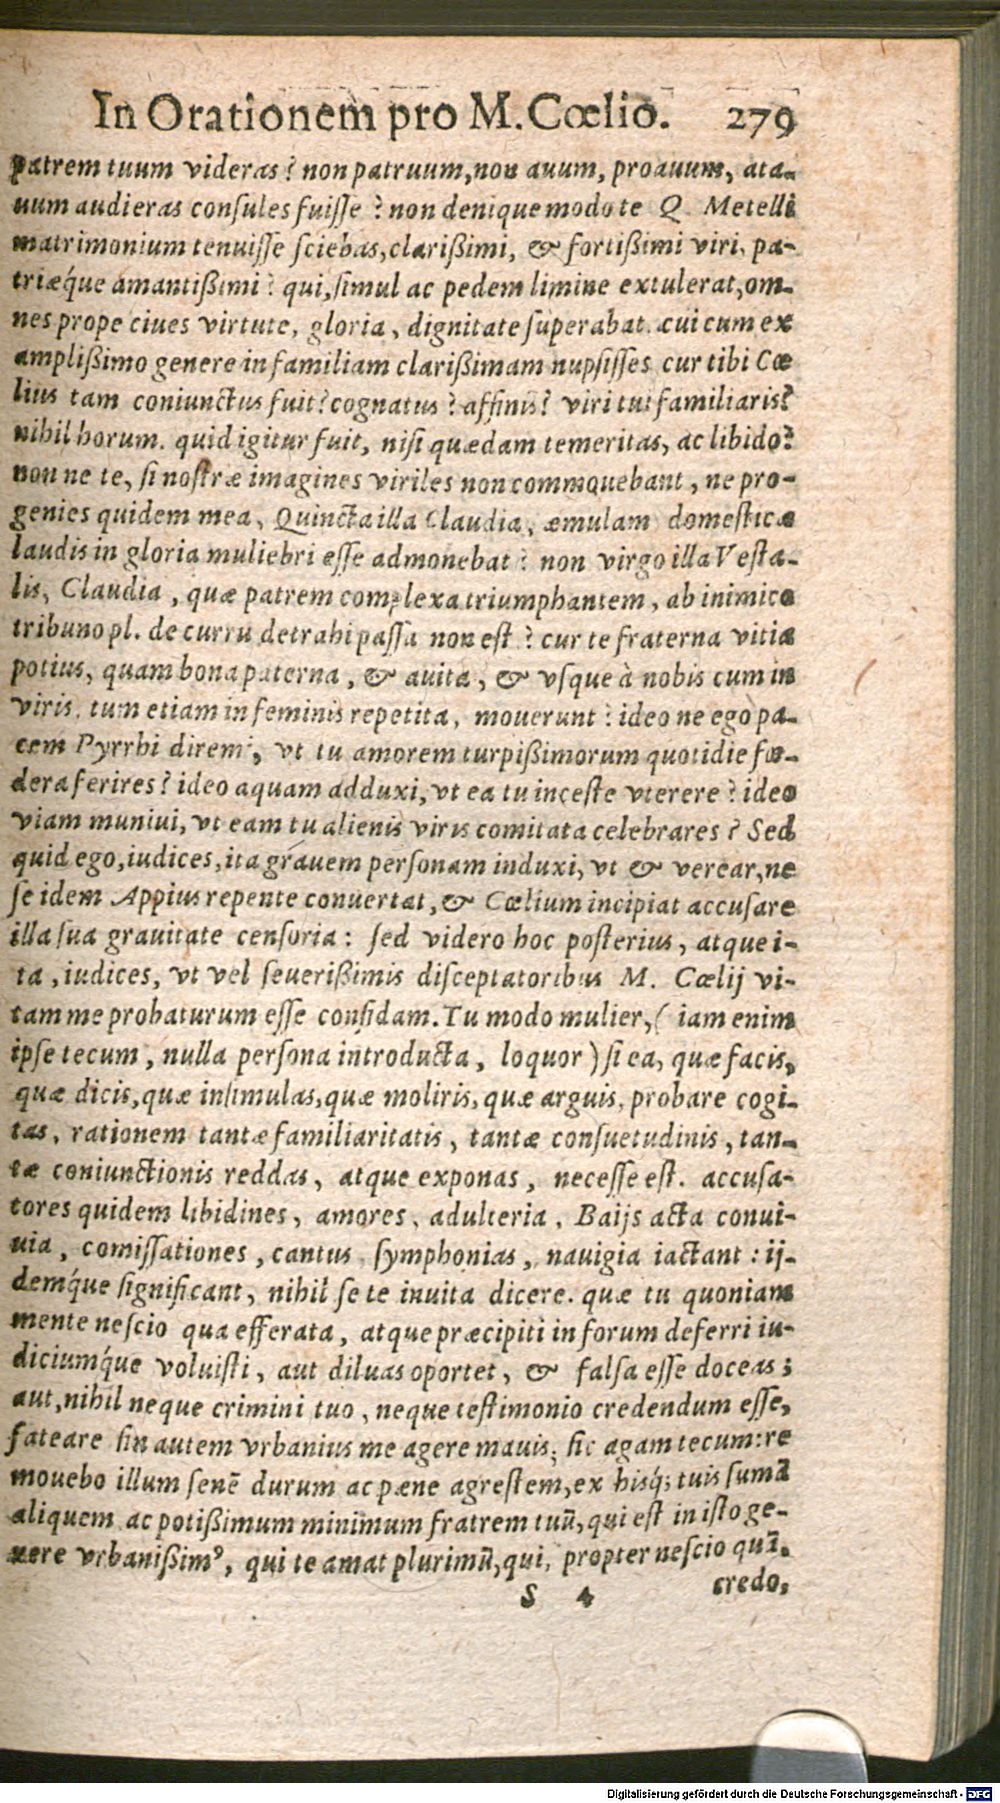 In Orationem pro M. Cœlio. 279
patrem tuum videras? non patruum, non auum, proauum, ata-
uum audieras consules fuisse? non denique modo te Q. Metelli
matrimonium tenuisse sciebas, clarißimi, & fortißimi viri, pa-
triæq́ue amantißimi? qui, simul ac pedem limine extulerat, om-
nes prope ciues virtute, gloria, dignitate superabat. cui cum ex
amplißimo genere in familiam clarißimam nupsisses cur tibi Cœ
lius tam coniunctus fuit? cognatus? affinis? viri tui familiaris?
nihil horum. quid igitur fuit, nisi quædam temeritas, ac libido?
non ne te, si nostræ imagines viriles non commouebant, ne pro-
genies quidem mea, Quincta illa Claudia, æmulam domesticæ
laudis in gloria muliebri esse admonebat? non virgo illa Vesta-
lis, Claudia, quæ patrem complexa triumphantem, ab inimico
tribuno pl. de curru detrahi passa non est? cur te fraterna vitia
potius, quam bona paterna, & auita, & vsque à nobis cum in
viris, tum etiam in feminis repetita, mouerunt? ideo ne ego pa-
cem Pyrrhi diremi, vt tu amorem turpißimorum quotidie fœ-
dera ferires? ideo aquam adduxi, vt ea tu inceste vterere? ideo
viam muniui, vt eam tu alienis viris comitata celebrares? Sed
quid ego, iudices, ita grauem personam induxi, vt & verear, ne
se idem Appius repente conuertat, & Cœlium incipiat accusare
illa sua grauitate censoria: sed videro hoc posterius, atque i-
ta, iudices, vt vel seuerißimis disceptatoribus M. Cœlij vi-
tam me probaturum esse confidam. Tu modo mulier, (iam enim
ipse tecum, nulla persona introducta, loquor) si ea, quæ facis,
quæ dicis, quæ insimulas, quæ moliris, quæ arguis, probare cogi-
tas, rationem tantæ familiaritatis, tantæ consuetudinis, tan-
tæ coniunctionis reddas, atque exponas, necesse est. accusa-
tores quidem libidines, amores, adulteria, Baijs acta conui-
uia, comissationes, cantus, symphonias, nauigia iactant: ij-
demq́ue significant, nihil se te inuita dicere. quæ tu quoniam
mente nescio qua efferata, atque præcipiti in forum deferri iu-
diciumq́ue voluisti, aut diluas oportet, & falsa esse doceas;
aut, nihil neque crimini tuo, neque testimonio credendum esse,
fateare sin autem vrbanius me agere mauis; sic agam tecum: re
mouebo illum senē durum ac pæne agrestem, ex hisq́; tuis sumā
aliquem, ac potißimum minimum fratrem tuū, qui est in isto ge-
nere vrbanißimꝰ, qui te amat plurimū, qui, propter nescio quā,
S 4 credo,
Digitalisierung gefördert durch die Deutsche Forschungsgemeinschaft - DFG